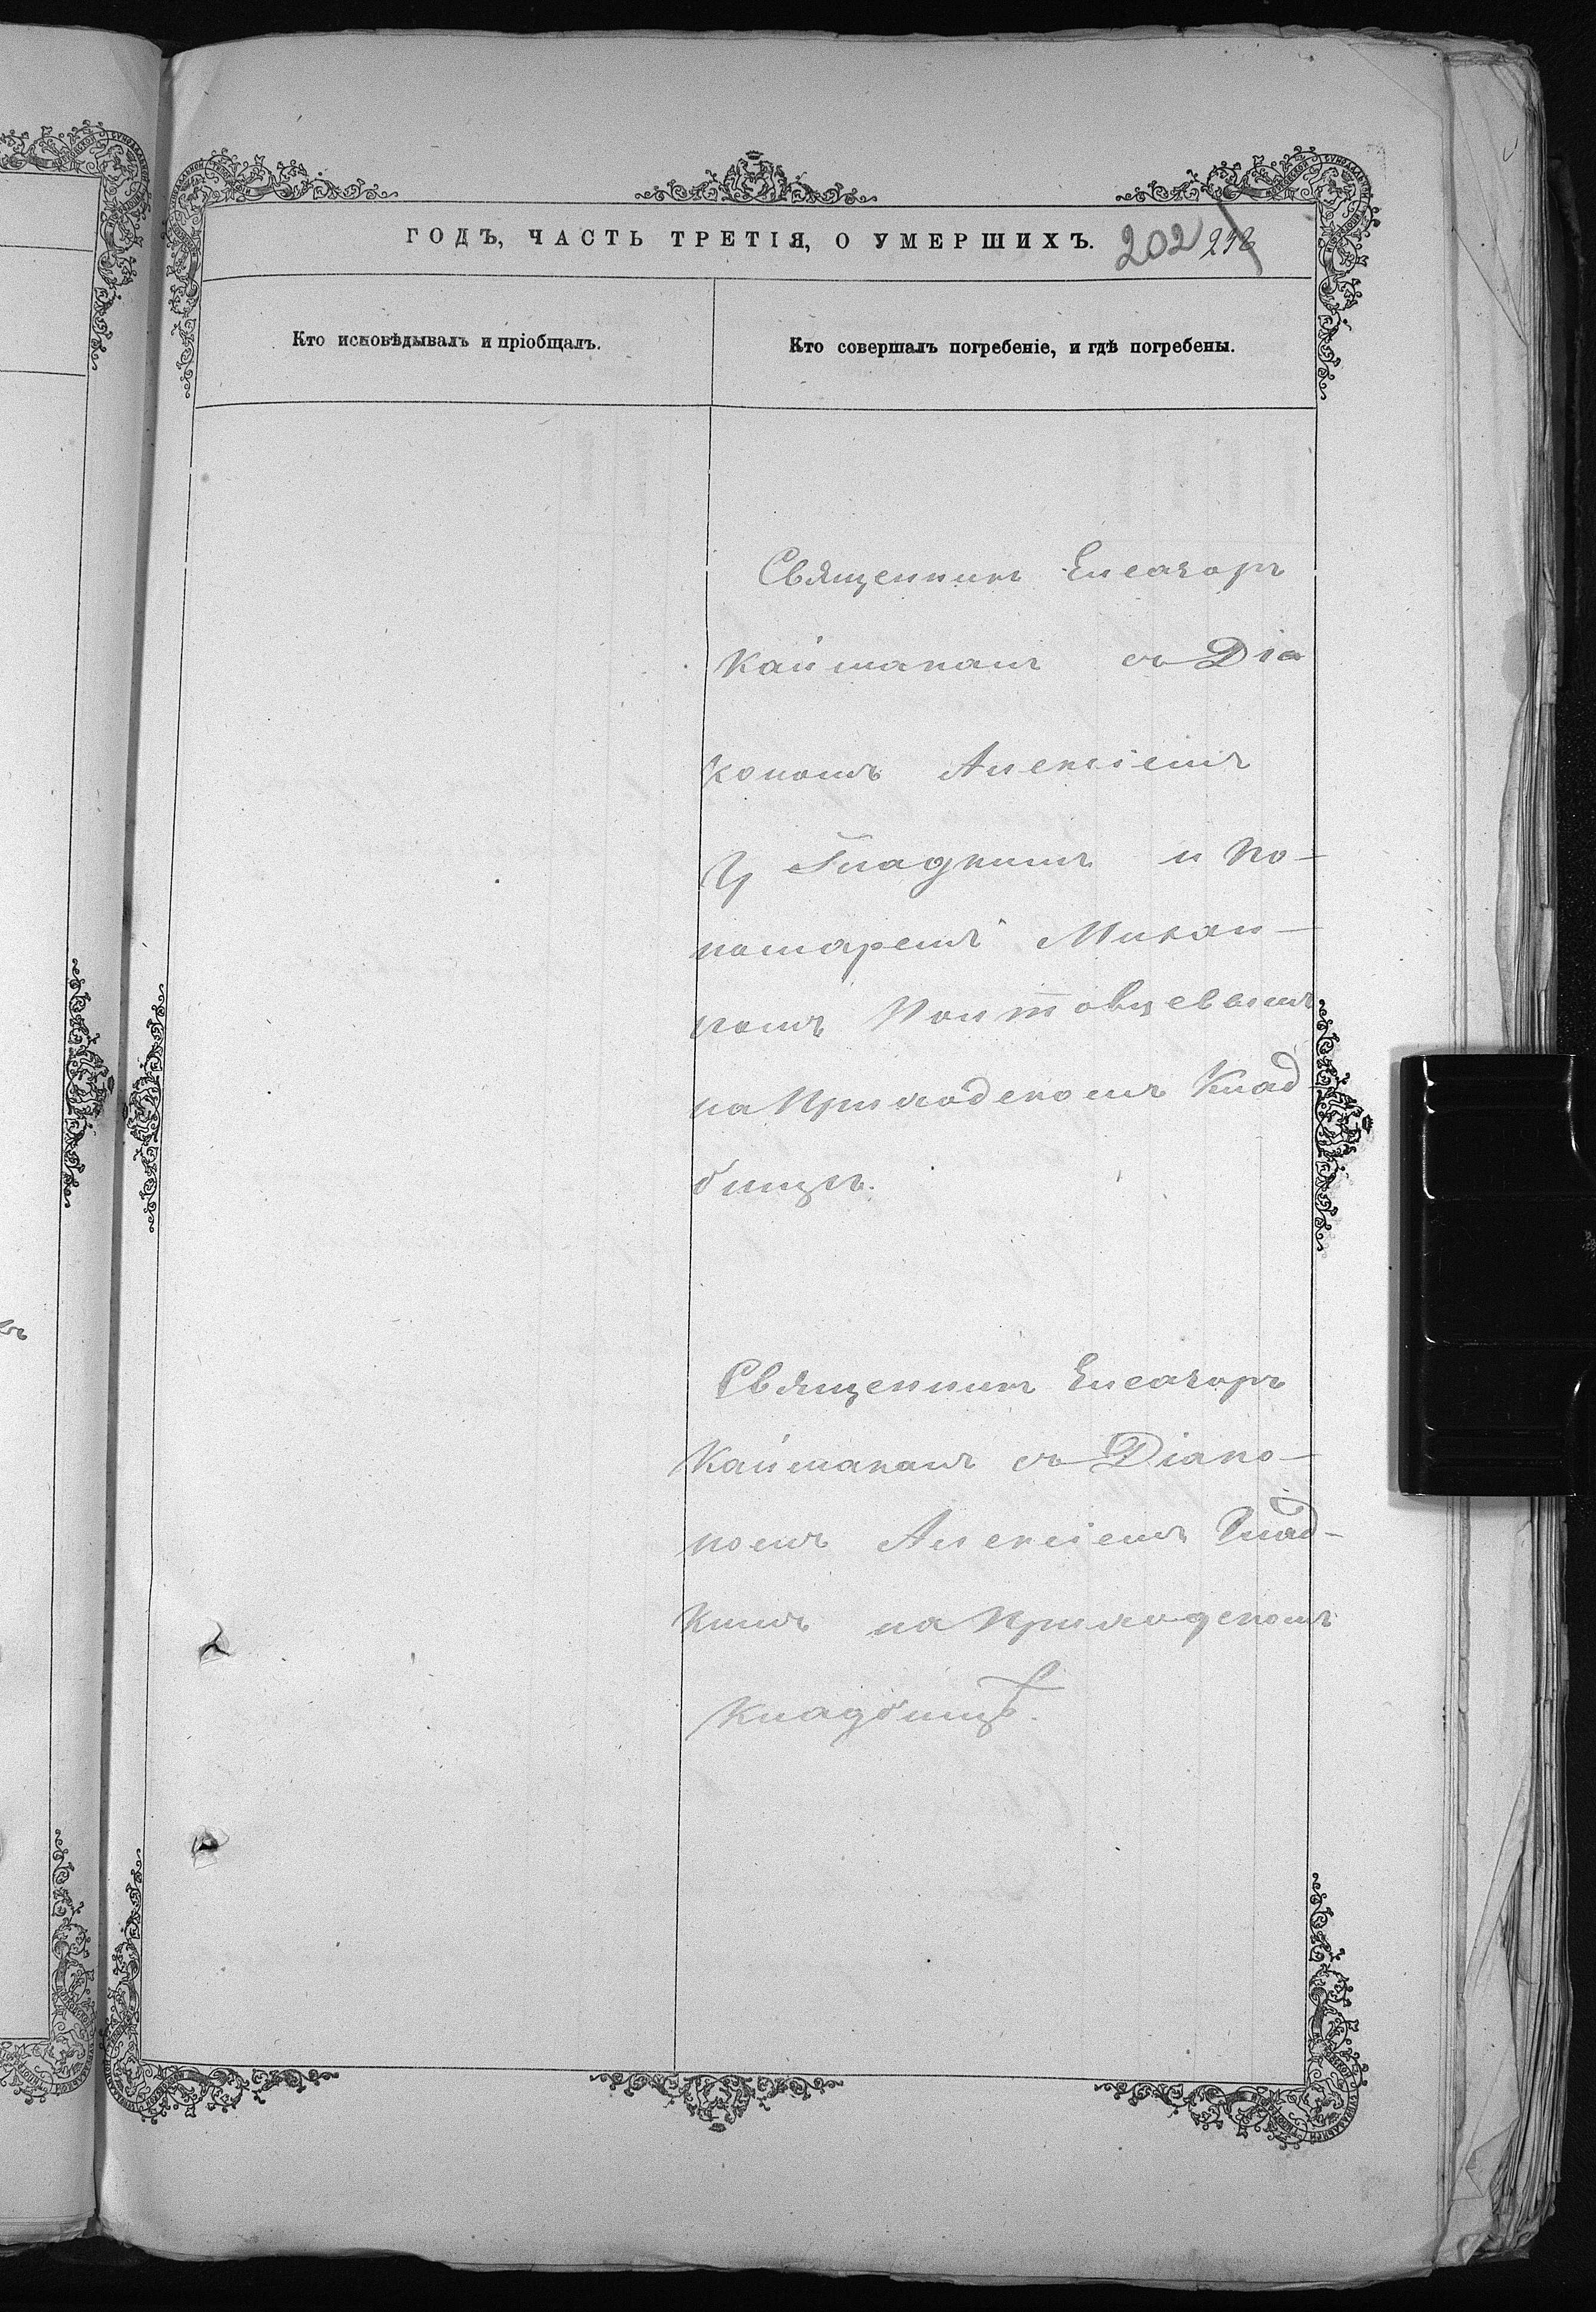 ГОДЪ, ЧАСТЬ ТРЕТІЯ, О УМЕРШИХЪ. 202
Кто исповѣдывалъ и пріобщалъ.
Кто совершалъ погребеніе, и гдѣ погребены.
Священникъ Елеазаръ
Каймаканъ съ Діа
кономъ Алексіемъ
Гладкимъ и по-
номаремъ
на ПриходскомъКлад
бищѣ.
Священникъ Елеазаръ
Каймаканъ съ Діако-
номъ Алексіемъ Глад-
кимъ на Приходскомъ
Кладбищѣ.